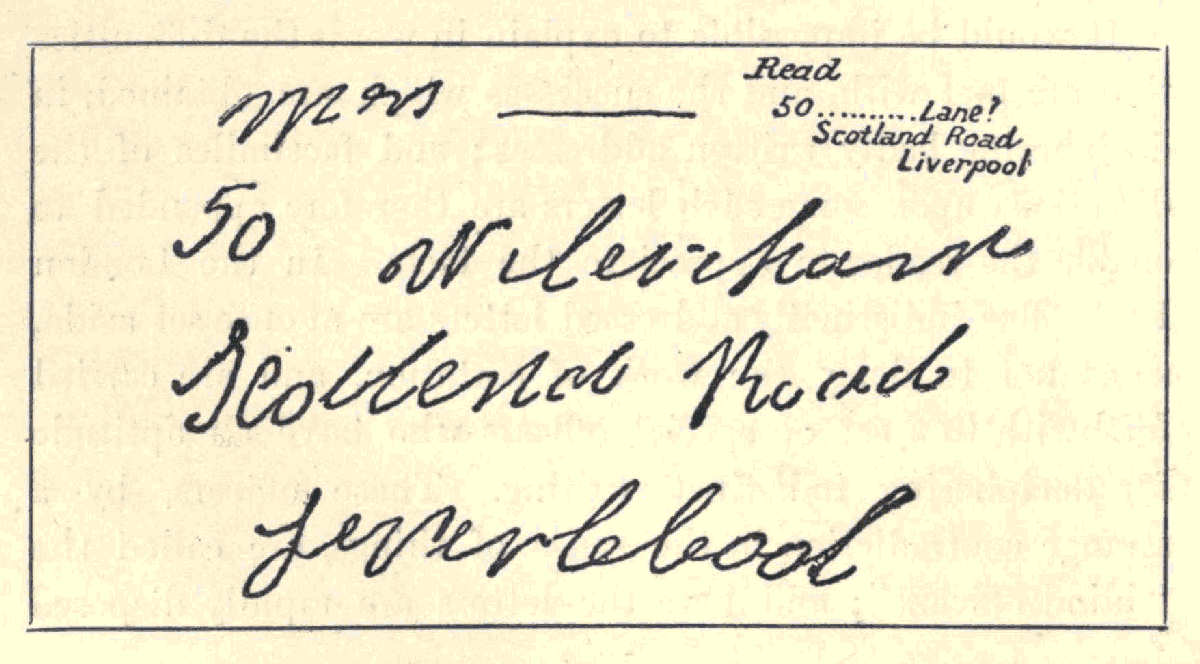 Mrs ———
Read
50..........Lane?
Scotland Road
Liverpool
50
Scotlend Road
Leverlebool